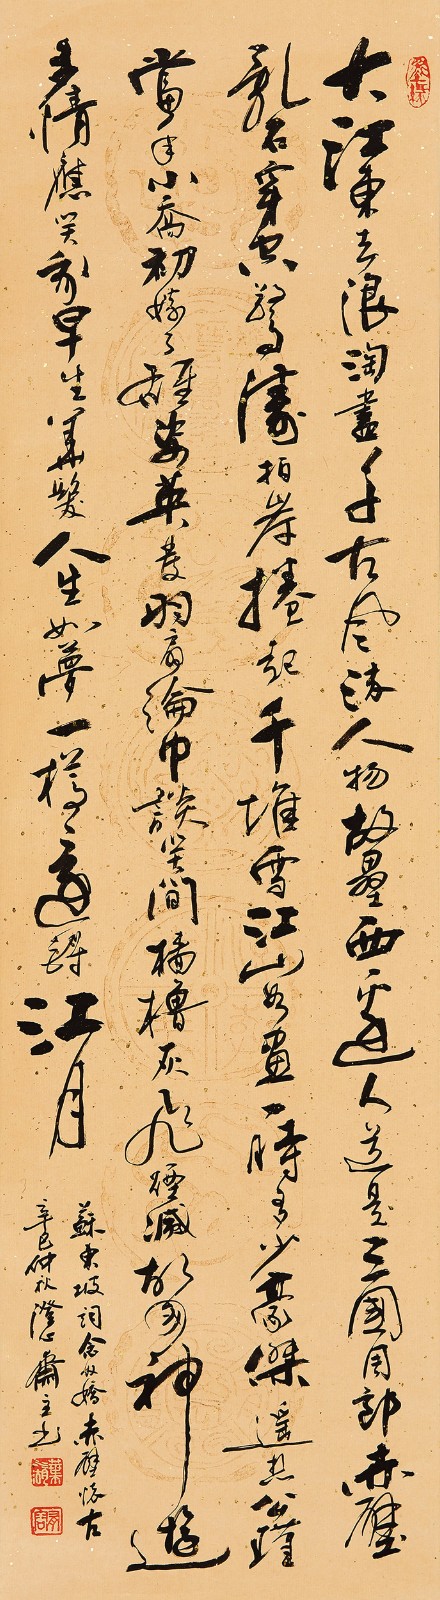 大江東去浪淘盡千古風流人物故壘西邊人道是三國周郎赤壁
亂石穿空驚濤拍岸捲起千堆雪江山如畫一時多少豪傑遙想公瑾
當年小喬初嫁了雄姿英發羽扇綸巾談笑間檣櫓灰飛煙滅故國神遊
多情應笑我早生華髮人生如夢一樽還酹江月
蘇東坡詞念奴嬌赤壁懷古
辛巳仲秋澄心齋主书